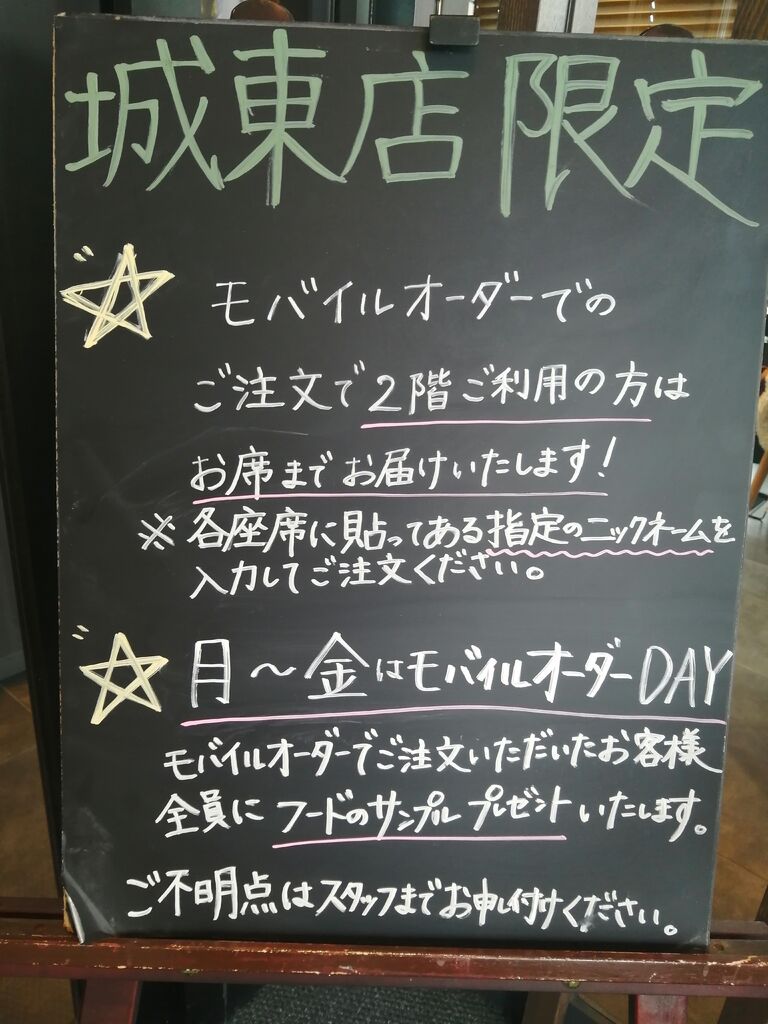 城東店限定
モバイルオーダーでの
ご注文で2階ご利用の方は
お席までお届けいたします!
※各座席に貼ってある指定のニックネームを
入力してご注文ください。
月～金はモバイルオーダーDAY
モバイルオーダーでご注文いただいたお客様
全員にフードのサンプルプレゼントいたします。
ご不明点はスタッフまでお申し付けください。